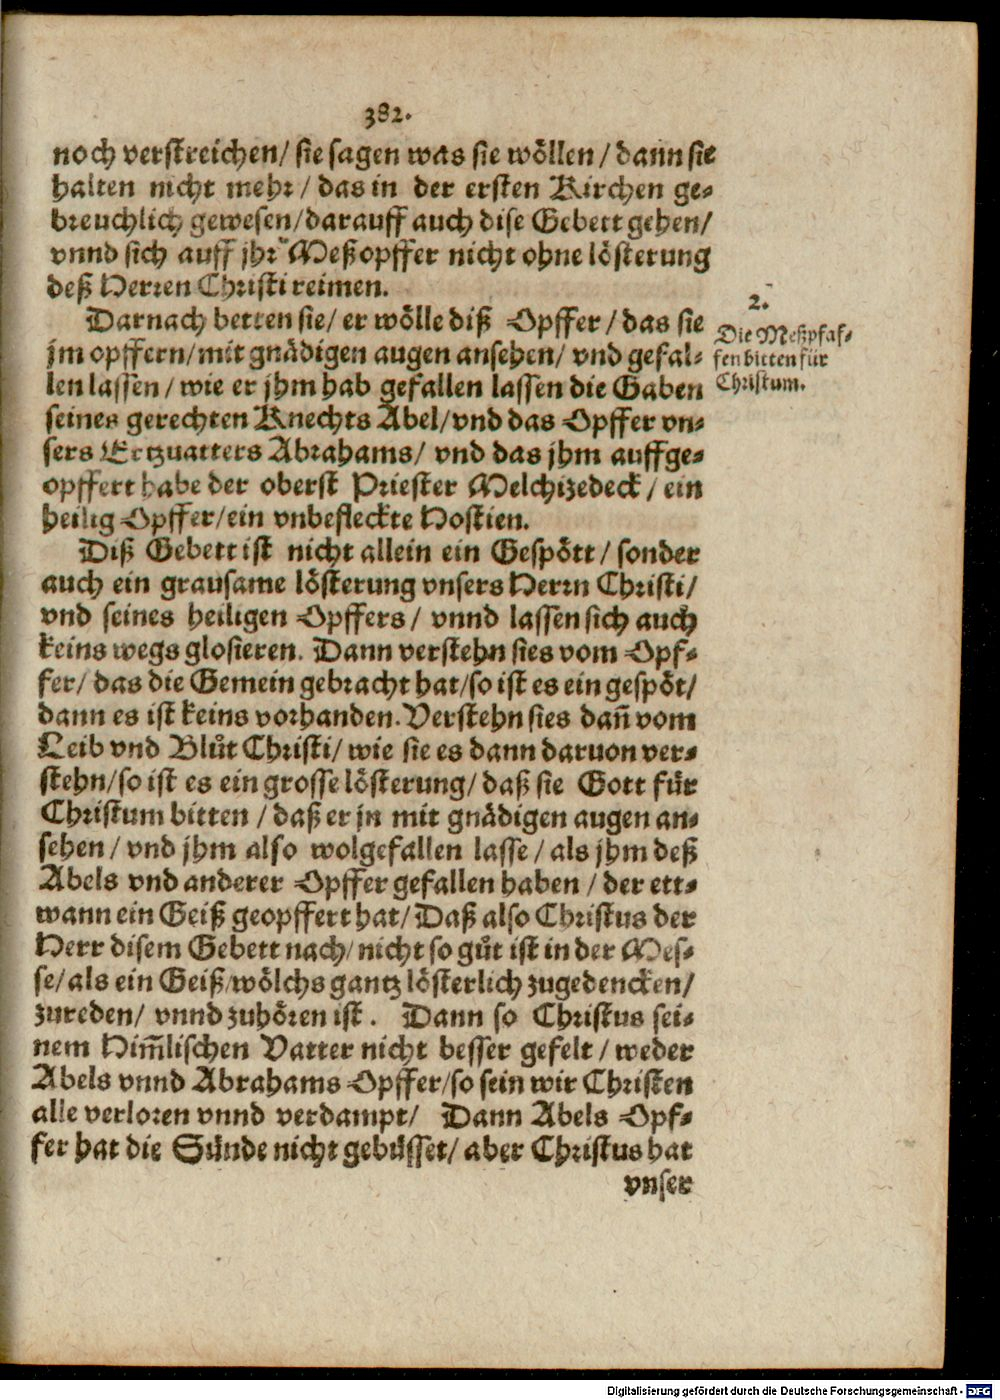 382.
noch verstreichen/ sie sagen was sie wöllen/ dann sie
halten nicht mehr/ das in der ersten Kirchen ge-
breuchlich gewesen/ darauff auch dise Gebett gehen/
vnnd sich auff jhr Meßopffer nicht ohne lösterung
deß Herren Christi reimen.
Darnach betten sie/ er wölle diß Opffer/ das sie
jm opffern/ mit gnädigen augen ansehen/ vnd gefal-
len lassen/ wie er jhm hab gefallen lassen die Gaben
seines gerechten Knechts Abel/ vnd das Opffer vn-
sers Ertzuatters Abrahams/ vnd das jhm auffge-
opffert habe der oberst Priester Melchizedeck/ ein
heilig Opffer/ ein vnbefleckte Hostien.
2.
Die Meßpfaf-
fen bitten für
Christum.
Diß Gebett ist nicht allein ein Gespött/ sonder
auch ein grausame lösterung vnsers Herrn Christi/
vnd seines heiligen Opffers/ vnnd lassen sich auch
keins wegs glosieren. Dann verstehn sies vom Opf-
fer/ das die Gemein gebracht hat/ so ist es ein gespöt/
dann es ist keins vorhanden. Verstehn sies dañ vom
Leib vnd Blůt Christi/ wie sie es dann daruon ver-
stehn/ so ist es ein grosse lösterung/ daß sie Gott für
Christum bitten/ daß er jn mit gnädigen augen an-
sehen/ vnd jhm also wolgefallen lasse/ als jhm deß
Abels vnd anderer Opffer gefallen haben/ der ett-
wann ein Geiß geopffert hat/ Daß also Christus der
Herr disem Gebett nach/ nicht so gůt ist in der Mes-
se/ als ein Geiß/ wölchs gantz lösterlich zugedencken/
zureden/ vnnd zuhören ist. Dann so Christus sei-
nem Him̃lischen Vatter nicht besser gefelt/ weder
Abels vnnd Abrahams Opffer/ so sein wir Christen
alle verloren vnnd verdampt/ Dann Abels Opf-
fer hat die Sünde nicht gebüsset/ aber Christus hat
vnser
Digitalisierung gefördert durch die Deutsche Forschungsgemeinschaft - DFG